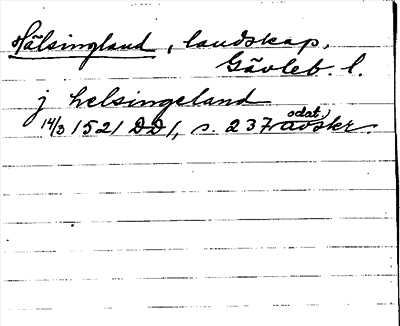 Hälsingland, landskap,
Gävleb. l.
j helsingeland
14/3 1521 DD 1, s. 237 odat. avskr.